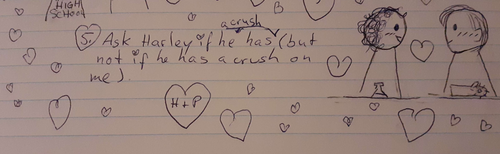 HIGH
SCHOOL
B
a crush
5. Ask Harley if he has (but
not if he has a crush on
me).
H + P